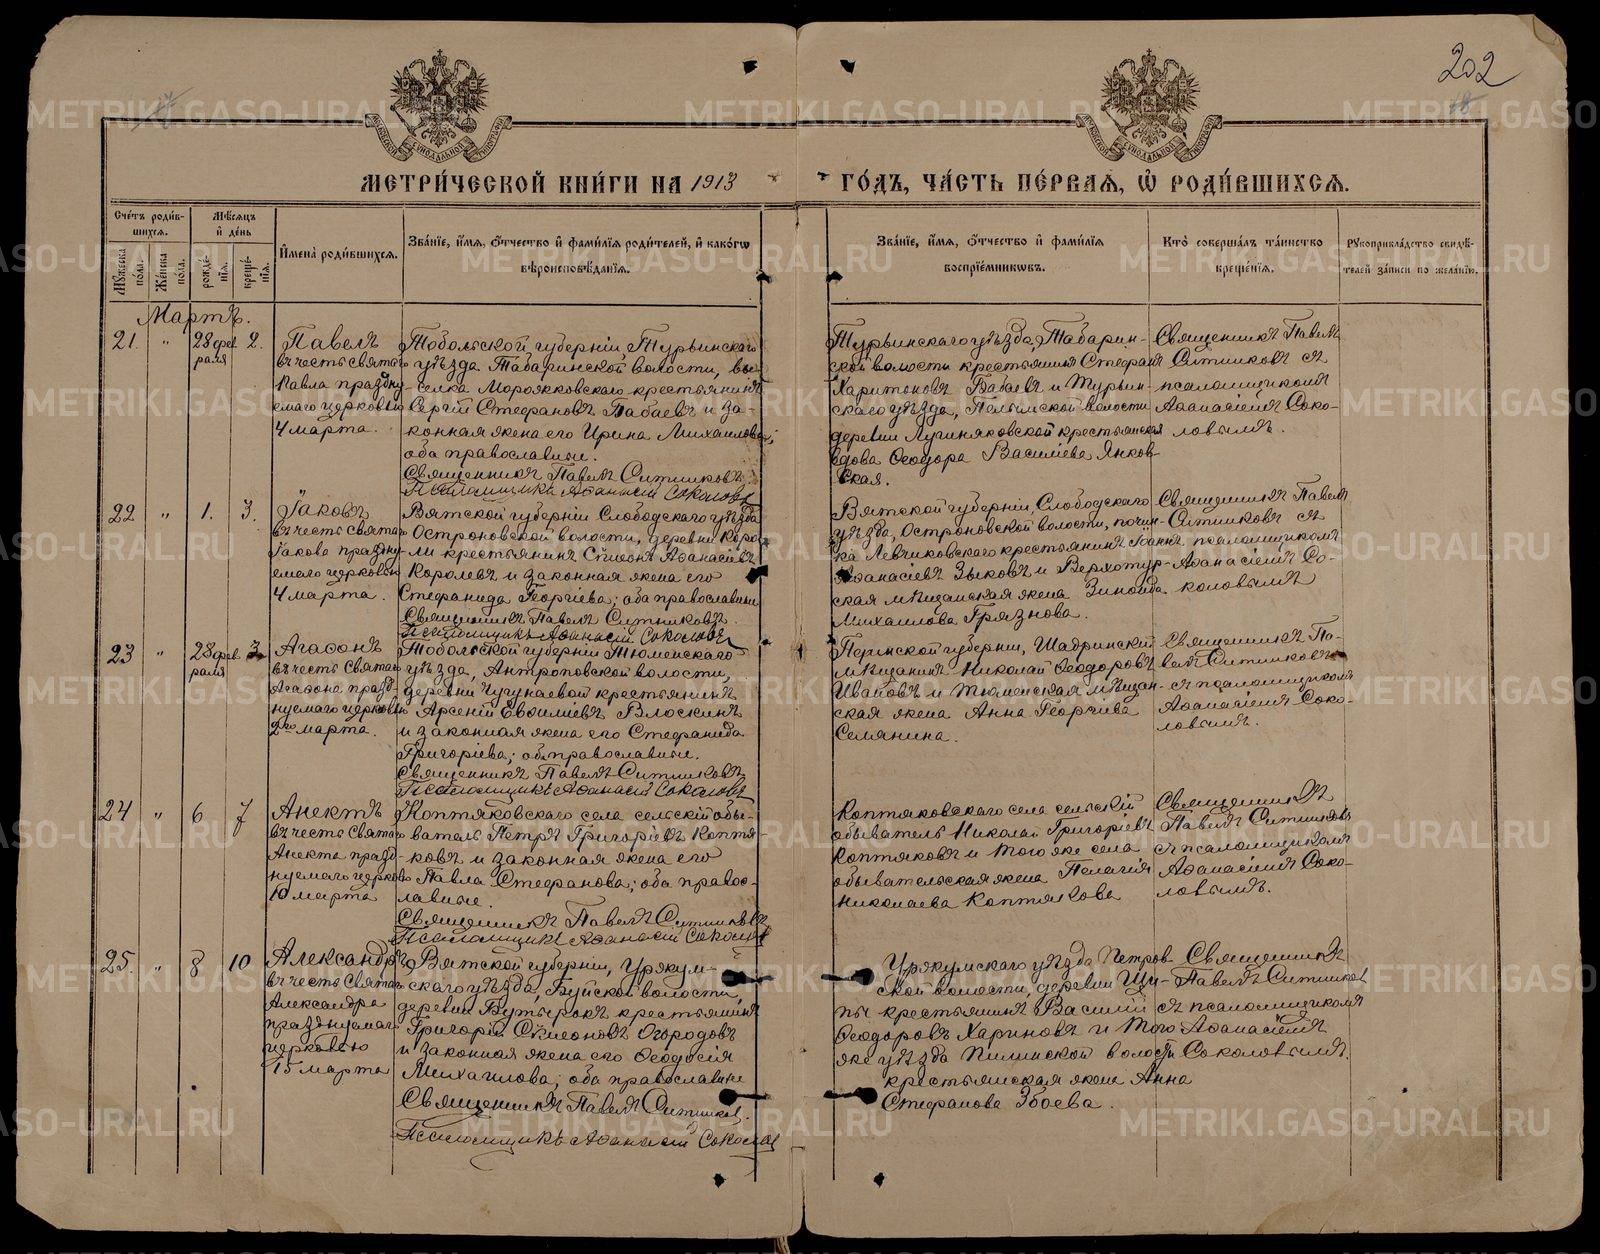 202
МЕТРИ́ЧЕСКОЙ КНИ́ГИ НА 1913 ГО́ДЪ, ЧА́СТЬ ПЕ́РВАѦ, Ѡ҆ РОДИ́ВШИХСѦ.
Сче́тъ роди́вшихсѧ.
Мѣ́сѧцъ и҆ де́нь
Мꙋ́жеска по́ла.
Же́нска по́ла.
рожде́нїѧ.
креще́нїѧ.
И҆мена̀ роди́вшихсѧ.
Зва́нїе, и҆́мѧ, ѻ҆́тчество и҆ фами́лїѧ роди́телей, и҆ како́гѡ
вѣроисповѣ́данїѧ.
Зва́нїе, и҆́мѧ, ѻ҆́тчество и҆ фами́лїѧ
воспрїе́мникѡвъ.
Кто̀ соверша́лъ та́инство
креще́нїѧ.
Рꙋкоприкла́дство свидѣ́-
телей за́писи по жела́нїю.
Мартъ.
21. " 28 фев раля 2.
Павелъ
въ честь святаго
Павла праздну
емаго церковью
4 марта.
Тобольской губерніи, Турьинскаго
уѣзда Табаринской волости, вы-
селка Морожковскаго крестьянинъ
Сергій Стефановъ Бабаевъ и за-
конная жена его Ирина Михаилова;
оба православные.
Священникъ Павелъ Ситниковъ
Псаломщикъ Аѳанасій Соколовъ
Турьинскаго уѣзда, Табарин-
ской волости крестьянинъ Стефанъ
Харитоновъ Бабаевъ и Турьин-
скаго уѣзда, Пелымской волости
деревни крестьянская
вдова Ѳеодора Васильева Янков-
ская.
Священникъ Павелъ
Ситниковъ съ
псаломщикомъ
Аѳанасіемъ Соко-
ловымъ.
22 " 1. 3.
Іаковъ
въ честь святаго
Іакова праздну
емаго церковью
4 марта.
Вятской губерніи Слободскаго уѣзда
Островновской волости, деревни Коро-
ли крестьянинъ Сѵмеонъ Аѳанасіевъ
Королевъ и законная жена его
Стефанида Георгіева; оба православные
Священникъ Павелъ Ситниковъ.
Псаломщикъ Аѳанасій Соколовъ
Вятской губерніи, Слободскаго
уѣзда, Островновской волости, почин-
ка Левчиковскаго крестьянинъ Іоаннъ
Аѳанасіевъ Зыковъ и Верхотур-
ская мѣщанская жена Зинаида
Михаилова Грязнова.
Священникъ Павелъ
Ситниковъ съ
псаломщикомъ
Аѳанасіемъ Со-
коловымъ
23 " 28 фев раля 3.
Агаѳонъ
въ честь святаго
Агаѳона празд-
нуемаго церковью
2го марта.
Тобольской губерніи Тюменскаго
уѣзда, Антроповской волости,
деревни Чугунаевой крестьянинъ
Арсеній Евѳиміевъ Влоскинъ
и законная жена его Стефанида
Григоріева; оба православные.
Священникъ Павелъ Ситниковъ
Псаломщикъ Аѳанасій Соколовъ
Пермской губерніи, Шадринскій
мѣщанинъ Николай Ѳеодоровъ
Ивановъ и Тюменская мѣщан-
ская жена Анна Георгіева
Селянина.
Священникъ Па-
велъ Ситниковъ
съ псаломщикомъ
Аѳанасіемъ Соко-
ловымъ.
24 " 6 7
Анектъ
въ честь святаго
Анекта празд-
нуемаго церковью
10 марта
Коптяковскаго села сельскій обы-
ватель Петръ Григоріевъ Коптя-
ковъ и законная жена его
Павла Стефанова; оба правос-
лавные.
Священникъ Павелъ Ситниковъ
Псаломщикъ Аѳанасій Соколовъ
Коптяковскаго села сельскій
обыватель Николай Григоріевъ
Коптяковъ и того же села
обывательская жена Пелагія
Николаева Коптякова
Священникъ
Павелъ Ситниковъ
съ псаломщикомъ
Аѳанасіемъ Соко-
ловымъ.
25. " 8 10
Александръ
въ честь святаго
Александра
празднуемаго
церковью
15 марта
Вятской губерніи, Уржум-
скаго уѣзда, Буйской волости,
деревни Бутырокъ крестьянинъ
Григорій Сѵмеоновъ Огородовъ
и законная жена его Ѳеодосія
Михаилова; оба православные
Священникъ Павелъ Ситников.
Псаломщикъ Аѳанасій Соколов
Уржумскаго уѣзда Петров-
ской волости, деревни Щи-
пы крестьянинъ Василій
Ѳеодоровъ Хариновъ и того
же уѣзда Пилинской волости
крестьянская жена Анна
Стефанова Збоева.
Священникъ
Павелъ Ситников
съ псаломщикомъ
Аѳанасіемъ
Соколовымъ.
METRIKI.GASO-URAL.RU